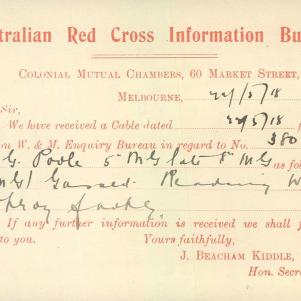 stralian Red Cross Information Bu
COLONIAL MUTUAL CHAMBERS, 60 MARKET STREET,
MELBOURNE, 24/5/18
Sir,
We have received a Cable dated 22/5/18
on W. & M. Enquiry Bureau in regard to No. 380
G. Poole 5 MG late 8 MG as follo
MG) Gassed. Reading W
If any further information is received we shall f
to you. Yours faithfully,
J. BEACHAM KIDDLE,
Hon. Secre